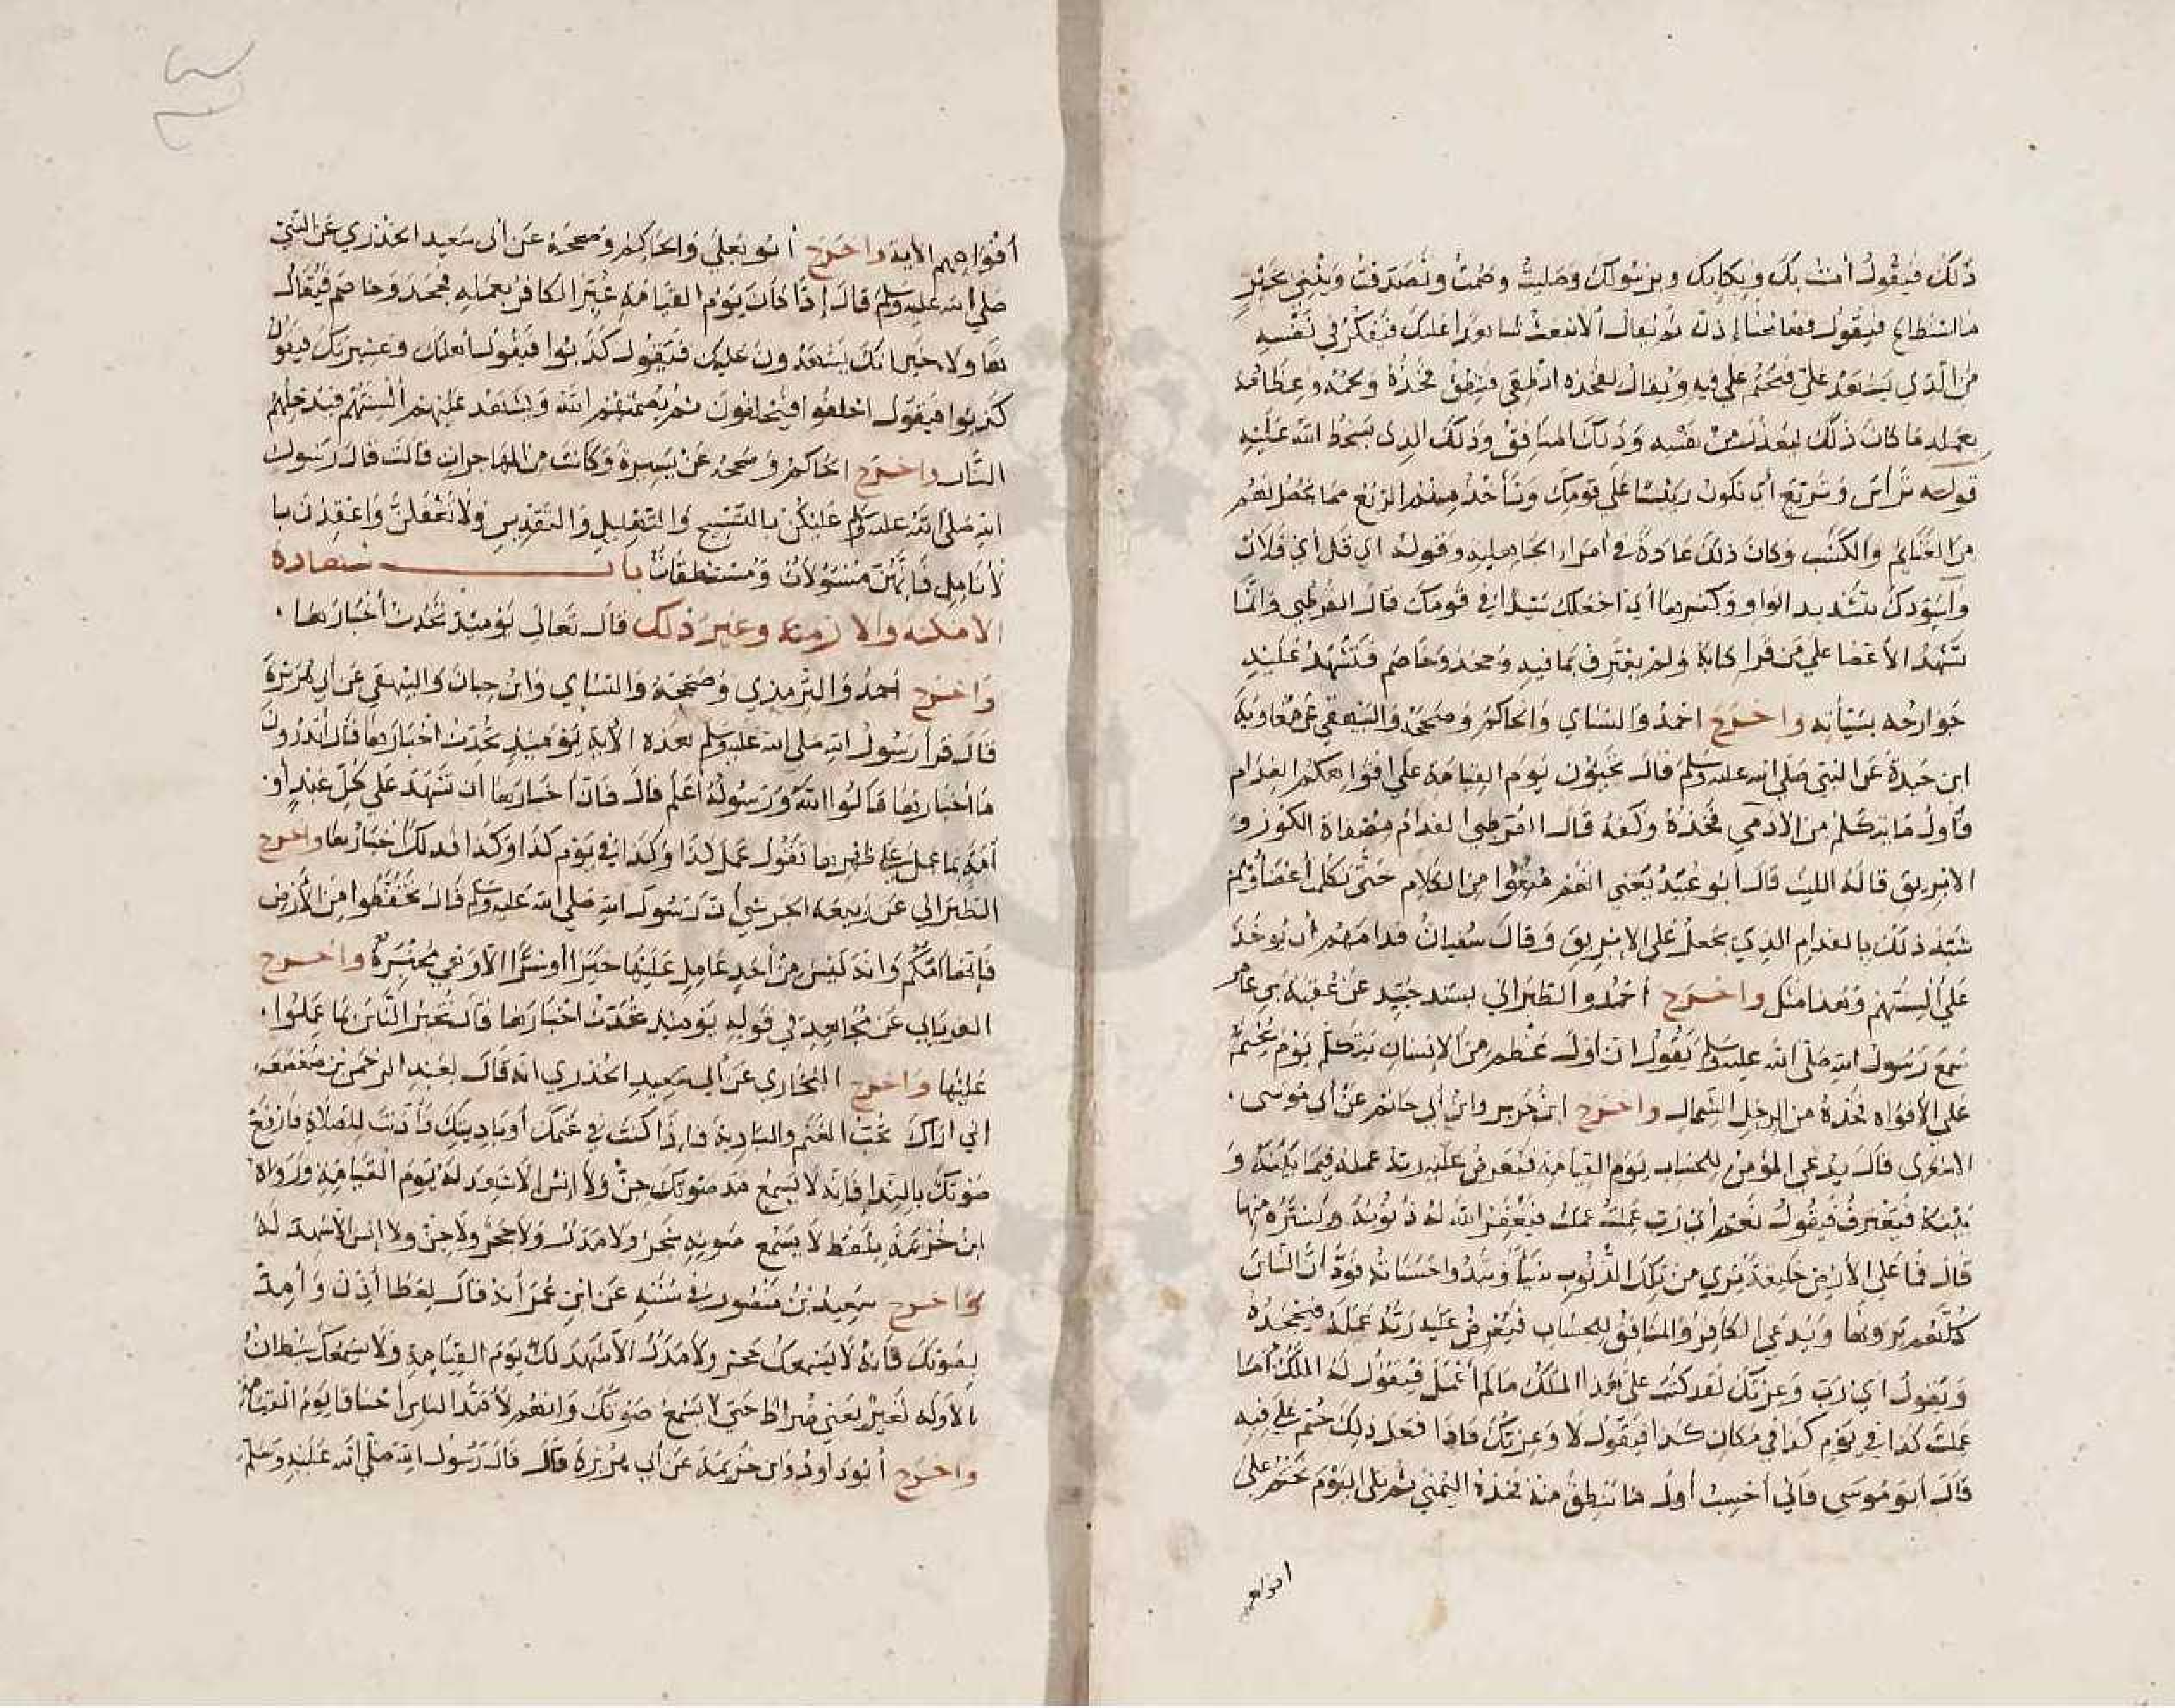 ذلك فيقول امنت بك وبكتابك وبرسولك وصليت وصمت وتصدقت ويثني بخير
ما استطاع فيقول فهاهنا إذن ثم يقال ألا نبعث شاهدا عليك فيفكر في نفسه
من الذي يشهد علي فيختم علي فيه ويقال لفخذه انطقي فينطق فخذه ولحمه وعظامه
بعمله ما كان ذلك ليعذر من نفسه وذلك المنافق وذلك الذي يسخط الله عليه
قوله ترأس وتربع أي تكون رئيسا على قومك وتأخذ منهم الربع مما يحصل لهم
من الغنايم والكسب وكان ذلك عادة في أمراء الجاهلية وقوله اي فل أي فلان
وأسودك بتشديد الواو وكسرها أي اجعلك سيدا في قومك قال القرطبي وانما
تشهد الأعضا علي من قرا كتابه ولم يعترف بما فيه وجحد وخاصم فتشهد عليه
جوارحه بسيأته واخرج احمد والنساي والحاكم وصححه والبيهقي عن معاوية
ابن حيدة عن النبي صلي الله عليه وسلم قال تجيؤن يوم القيامة علي افواهكم الفدام
فأول ما يتكلم من الادمي فخذه وكفه قال القرطبي الفدام مصفاة الكوز و
الابريق قاله الليث قال أبو عبيد يعني انهم منعوا من الكلام حتى تكلم أعضاؤهم
شبه ذلك بالفدام الذي يجعل على الابريق وقال سفيان فدامهم أن يوخذ
على ألسنتهم وهذا مثل واخرج أحمد والطبراني بسند جيد عن عقبة بن عامر
سمع رسول الله صلى الله عليه وسلم يقول ان اول عظم من الإنسان يتكلم يوم يختم
على الأفواه فخذه من الرجل الشمال واخرج ابن جرير وابن أبي حاتم عن أبي موسى
الاشعري قال يدعى المؤمن للحساب يوم القيامة فيعرض عليه ربه عمله فيما بينه و
بينه فيعترف فيقول نعم أي رب عملت عملت فيغفر الله له ذنوبه ويستره منها
قال فما على الأرض خليقة يري من تلك الذنوب شيأ وتبدوا حسناته فود أن الناس
كلهم يرونها ويدعى الكافر والمنافق للحساب فيعرض عليه ربه عمله فيجحده
ويقول اي رب وعزتك لقد كتب علي هذا الملك مالم أعمل فيقول له الملك أما
عملت كذا في يوم كذا في مكان كذا فيقول لا وعزتك فاذا فعل ذلك ختم على فيه
قال أبو موسى فاني أحسب أول ما تنطق منه فخذه اليمني ثم تلى اليوم نختم على
افواههم
أفواههم الأية واخرج أبو يعلي والحاكم وصححه عن أبي سعيد الخدري عن النبي
صلي الله عليه وسلم قال إذا كان يوم القيامة عير الكافر بعمله فجحد وخاصم فيقال
هاولا جيرانك يشهدون عليك فيقول كذبوا فيقول أهلك وعشيرتك فيقول
كذبوا فيقول احلفوا فيحلفون ثم يصمتهم الله ويشهد عليهم ألسنتهم فيدخلهم
النار واخرج الحاكم وصححه عن يسيرة وكانت من المهاجرات قالت قال رسول
الله صلى الله عليه وسلم عليكن بالتسبيح والتهليل والتقديس ولا تغفلن واعقدن با
لأنامل فانهن مسؤلات ومستنطقات باب شهادة
الامكنه والازمنه وغير ذلك قال تعالى يومئذ تحدث أخبارها
واخرج أحمد والترمذي وصححه والنساي وابن حبان والبيهقي عن أبي هريرة
قال قرأ رسول الله صلي الله عليه وسلم هذه الأية يومئذ تحدث اخبارها قال أتدرون
ما أخبارها قالوا الله ورسوله أعلم قال فان أخبارها ان تشهد علي كل عبد أو
أمة بما عمل على ظهرها تقول عمل كذا وكذا في يوم كذا وكذا فذلك اخبارها واخرج
الطبراني عن ربيعة الجرشي أن رسول الله صلي الله عليه وسلم قال تحفظوا من الأرض
فإنها أمكم وانه ليس من أحد عامل عليها خيرا أو شرا الا وهي مخبرة واخرج
الفريابي عن مجاهد في قوله يومئذ تحدث اخبارها قال تخبر الناس بما عملوا
عليها واخرج البخاري عن أبي سعيد الخدري انه قال لعبد الرحمن بن صعصعة
اني اراك تحب الغنم والبادية فإذا كنت في غنمك أو باديتك فأذنت للصلاة فارفع
صوتك بالندا فإنه لا يسمع مد صوتك جن ولا انس الا شهد له يوم القيامة ورواه
ابن خزيمة بلفظ لا يسمع صوته شجر ولا مدر ولا حجر ولا جن ولا انس الا شهد له
واخرج سعيد بن منصور في سننه عن ابن عمر أنه قال لعطا أذن وأمد
بصوتك فانه لا يسمعك حجر ولا مدر الا شهد لك يوم القيامة ولا يسمعك شيطان
الا وله نفير يعني ضراط حتى لا يسمع صوتك وانهم لأمد الناس اعناقا يوم القيامة
واخرج أبو داود وابن خزيمة عن أبي هريرة قال قال رسول الله صلى الله عليه وسلم